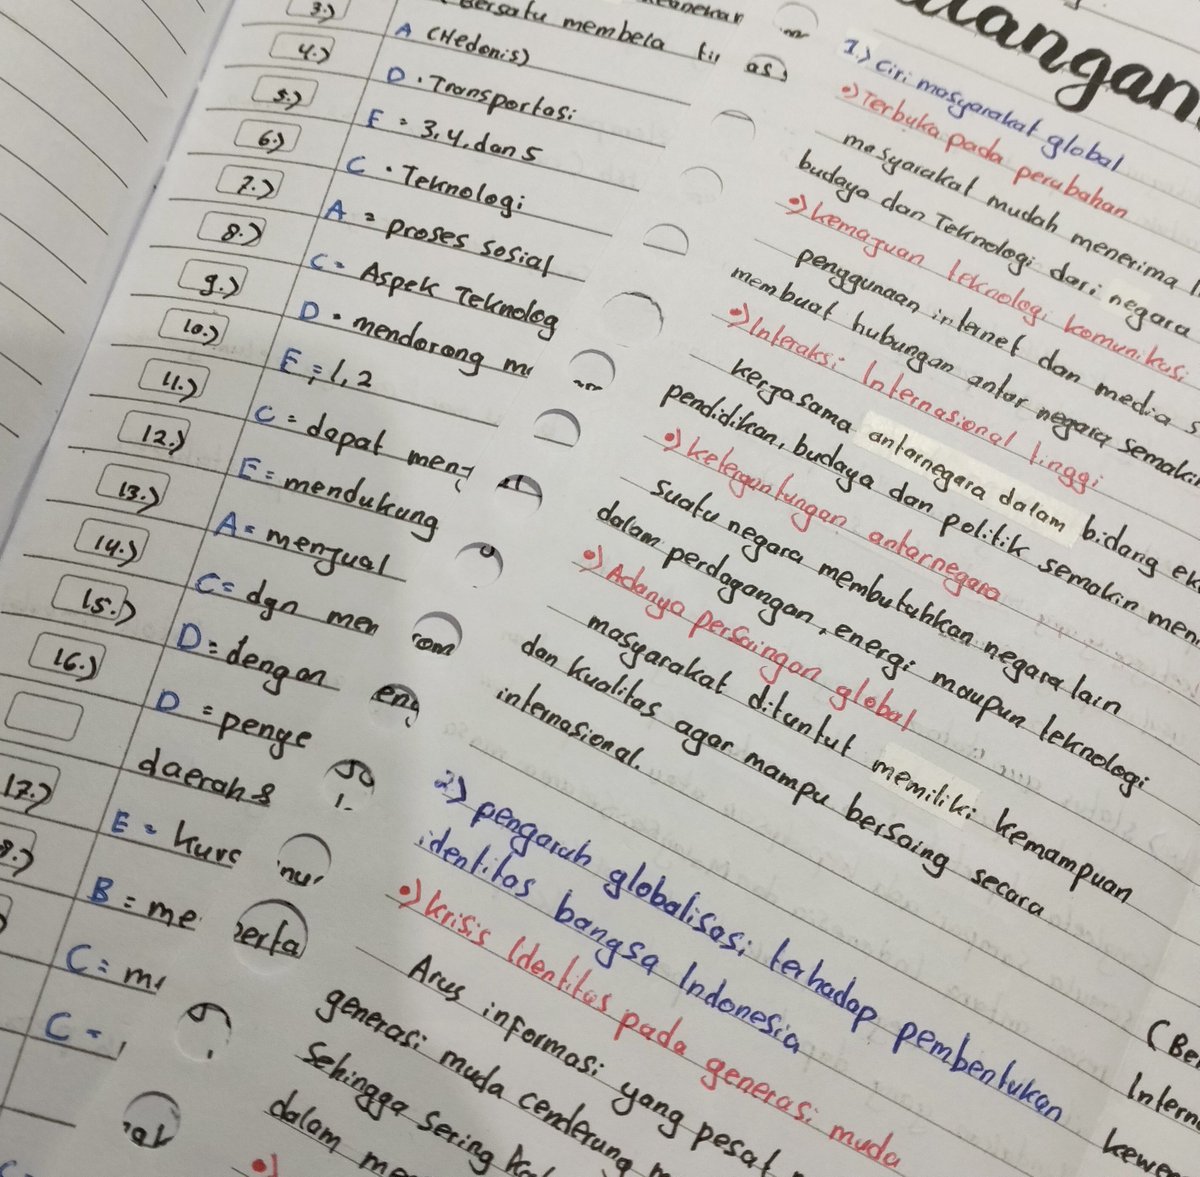 3.)
Bersatu membela
4.) A (Hedonis)
5.) D • Transportasi
6.) E = 3, 4, dan 5
7.) C • Teknologi
8.) A = proses sosial
9.) C = Aspek Teknolog
10.) D • mendorong
11.) E = 1, 2
12.) C = dapat
13.) E = mendukung
14.) A = menjual
15.) C = dgn
16.) D = dengan
D = penge
daerah &
17.) E =
B = me
C =
C =
angan
1.) Ciri masyarakat global
•) Terbuka pada perubahan
masyarakat mudah menerima
budaya dan Teknologi dari negara
•) kemajuan teknologi komunikasi
penggunaan internet dan media s
membuat hubungan antar negara semakin
•) Interaksi Internasional tinggi
kerjasama antarnegara dalam bidang ek
pendidikan, budaya dan politik semakin men
•) ketergantungan antarnegara
suatu negara membutuhkan negara lain
dalam perdagangan, energi maupun teknologi
•) Adanya persaingan global
masyarakat dituntut memiliki kemampuan
dan kualitas agar mampu bersaing secara
internasional.
2.) pengaruh globalisasi terhadap pembentukan
identitas bangsa Indonesia
•) krisis Identitas pada generasi muda
Arus informasi yang pesat
generasi muda cenderung
Sehingga sering
dalam me
•)
(Be
Intern
kewe